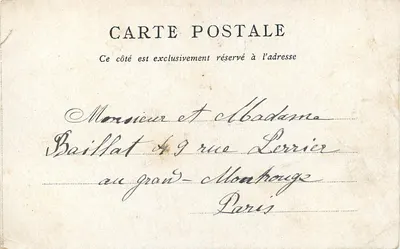 CARTE POSTALE
Ce côté est exclusivement réservé à l'adresse
Monsieur et Madame
Baillat 49 rue Perrier
au grand- Montrouge
Paris